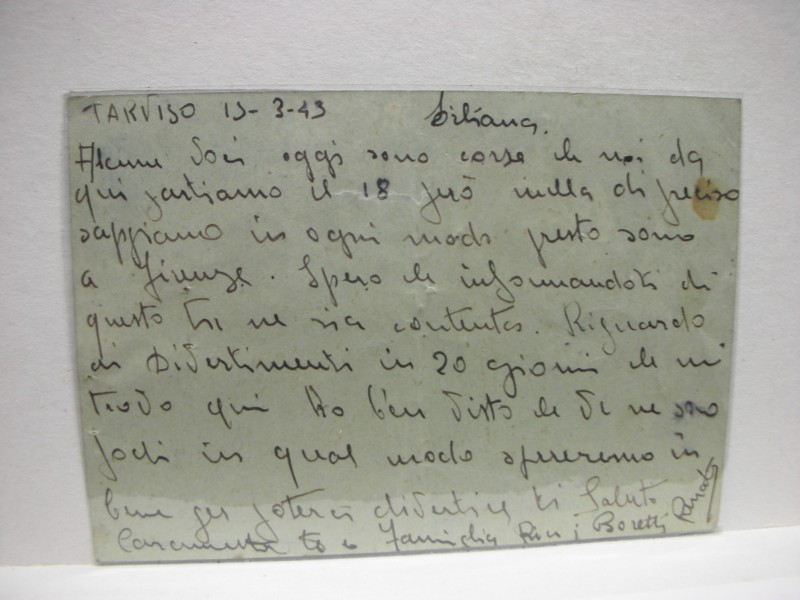 TARVISO 13-3-43 Liliana.
Alcune voci oggi sono corse che noi da
qui partiamo il 18 però nulla di preciso
sappiamo in ogni modo presto sono
a Firenze. Spero che informandoti di
questo tu ne sia contenta. Riguardo
ai Divertimenti in 20 giorni che mi
trovo qui ho ben visto che ve ne sono
pochi in qual modo spereremo in
bene per poterci divertire ti Saluto
Caramente te e Famiglia Boretti Renato